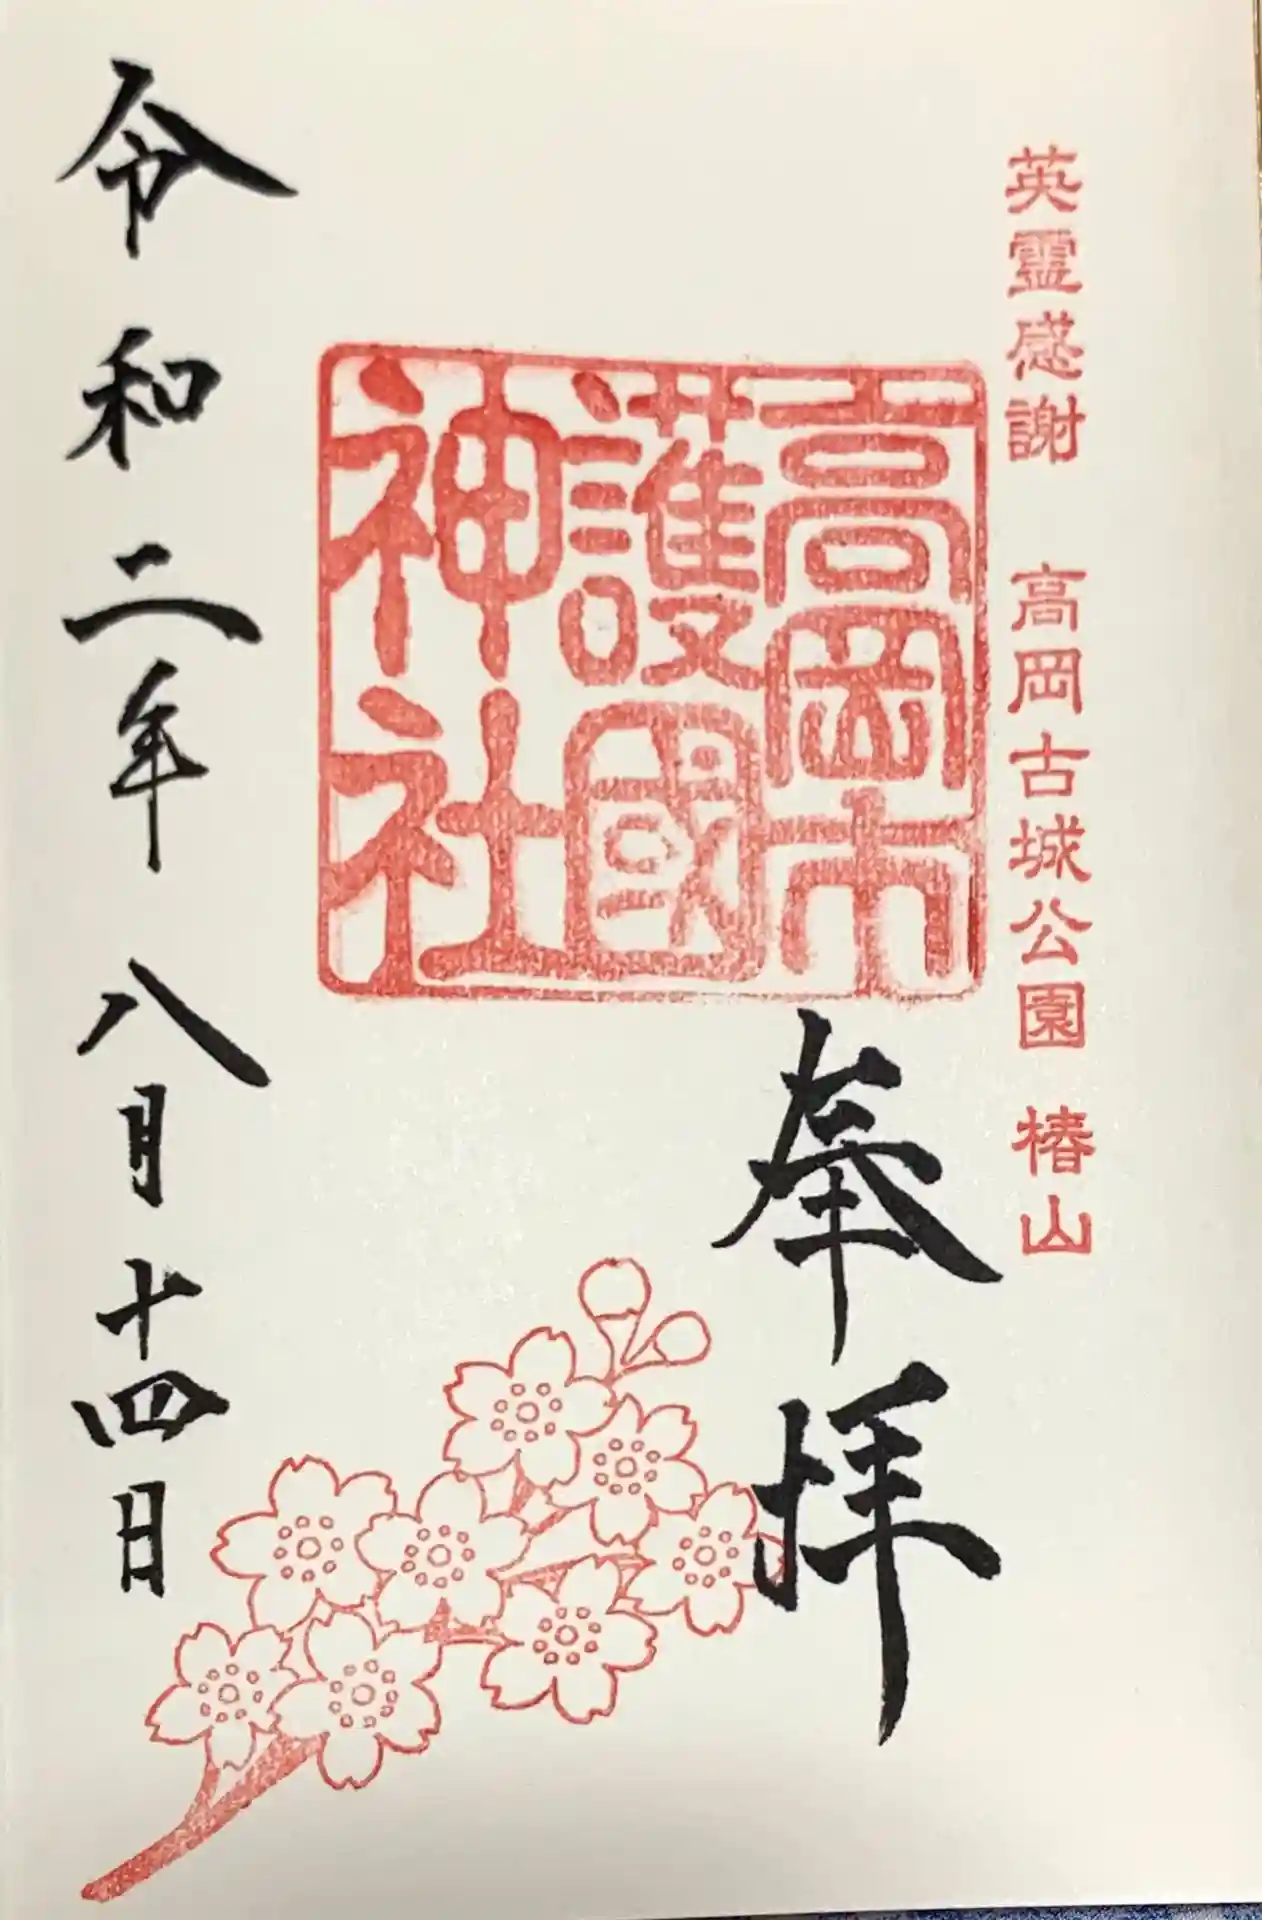 英霊感謝 高岡古城公園 椿山
奉拝
高岡市
護國
神社
令和二年八月十四日